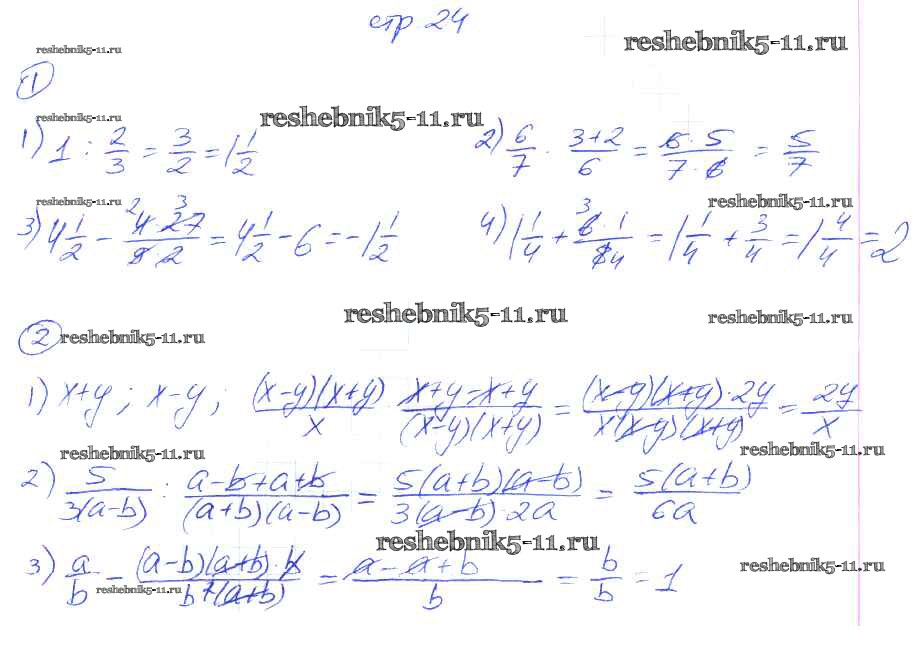 стр 24
reshebnik5-11.ru reshebnik5-11.ru
1
reshebnik5-11.ru reshebnik5-11.ru
1) 1 : 2/3 = 3/2 = 1 1/2 2) 6/7 · (3+2)/6 = (6·5)/(7·6) = 5/7
reshebnik5-11.ru reshebnik5-11.ru
3) 4 1/2 − (4·27)/(9·2) = 4 1/2 − 6 = −1 1/2 4) 1 1/4 + (6·1)/(8·4) = 1 1/4 + 3/4 = 1 4/4 = 2
reshebnik5-11.ru reshebnik5-11.ru
2 reshebnik5-11.ru
1) x+y; x−y; (x−y)(x+y)/x · (x+y−x+y)/((x−y)(x+y)) = ((x−y)(x+y)·2y)/(x(x−y)(x+y)) = 2y/x
reshebnik5-11.ru reshebnik5-11.ru
2) 5/(3(a−b)) : (a−b+a+b)/((a+b)(a−b)) = (5(a+b)(a−b))/(3(a−b)·2a) = (5(a+b))/(6a)
reshebnik5-11.ru
3) a/b − ((a−b)(a+b)·b)/(b²(a+b)) = (a−a+b)/b = b/b = 1
reshebnik5-11.ru reshebnik5-11.ru